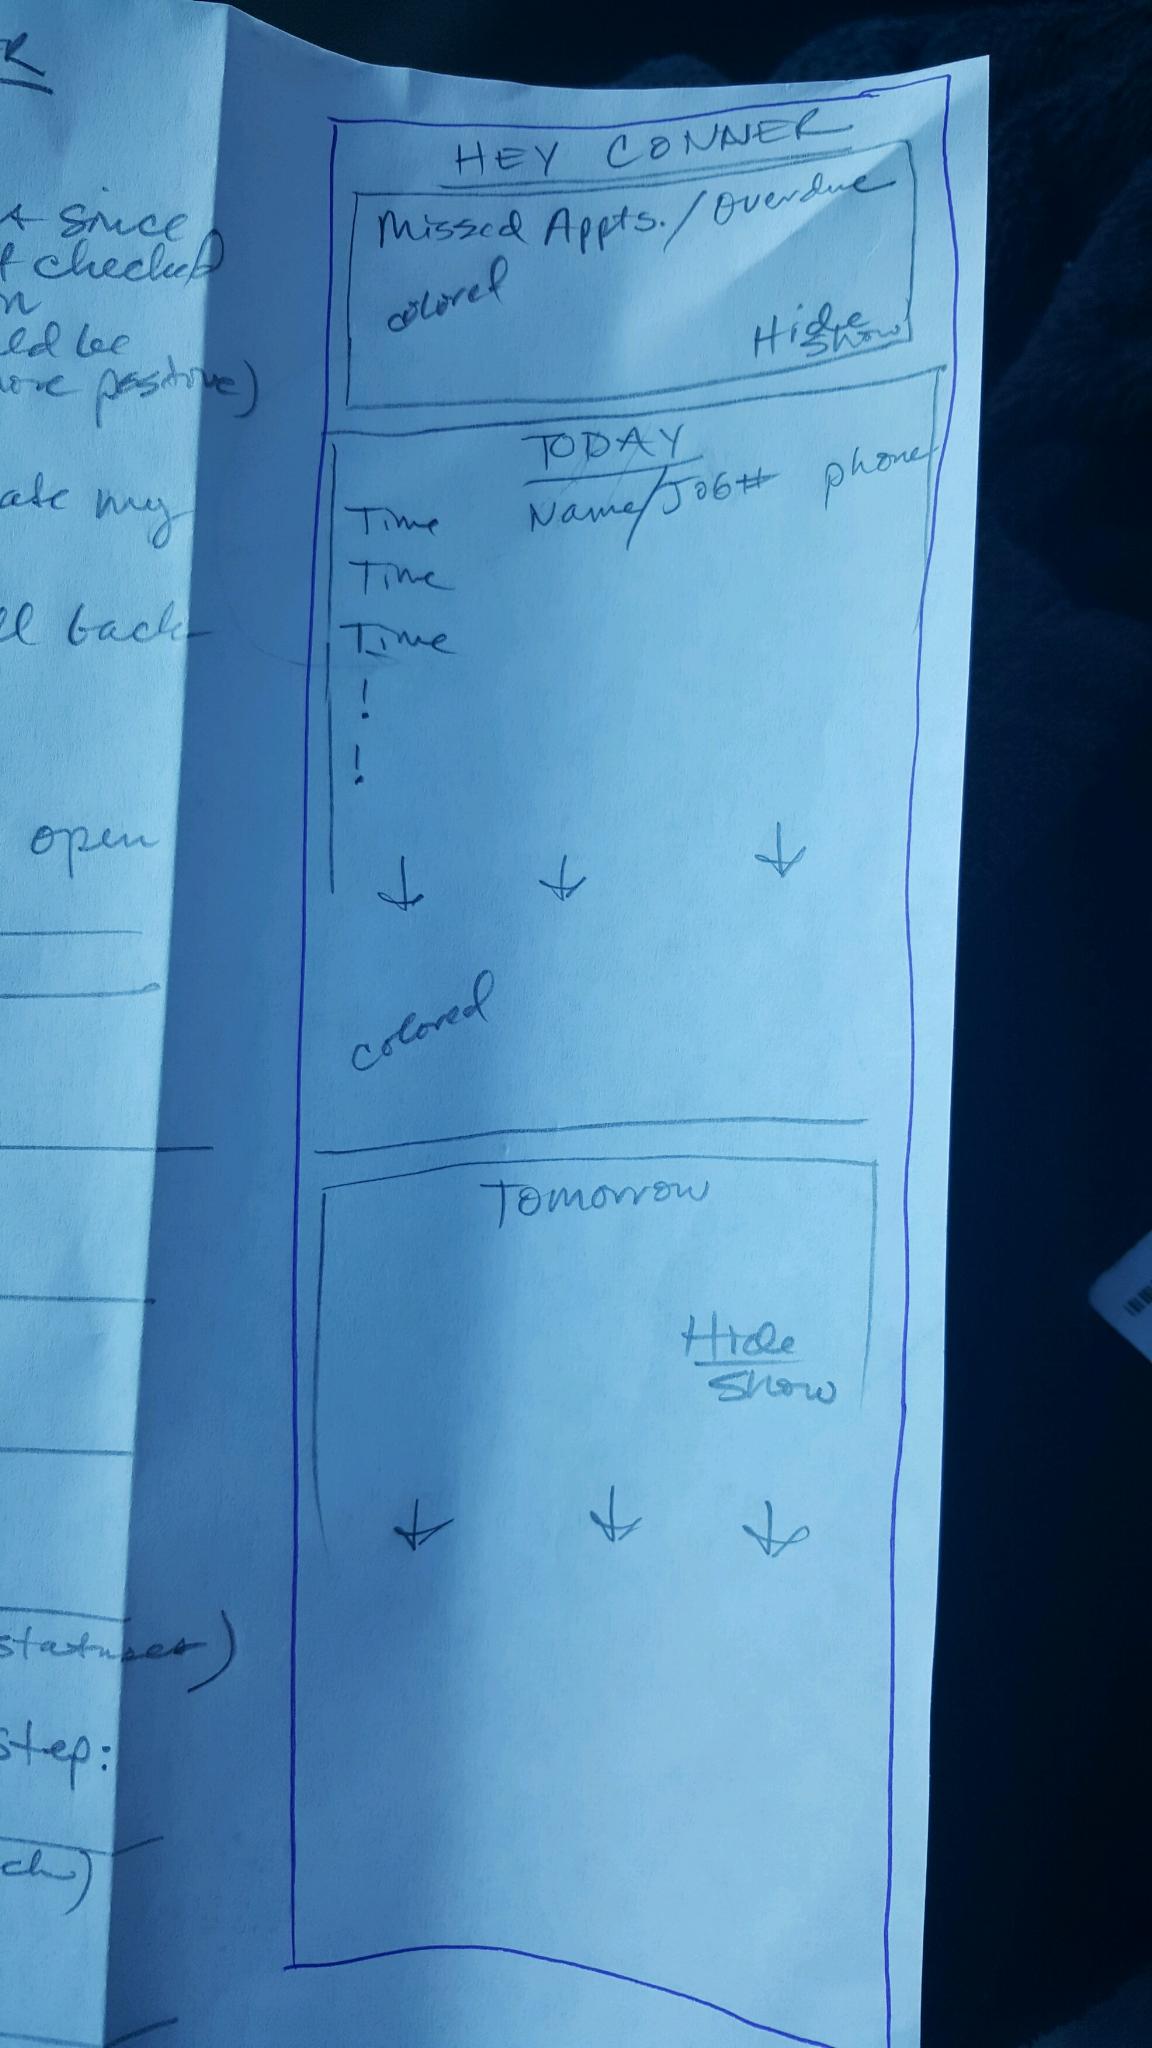 since
checked
be
positive)
my
back
open
statuses)
step:
HEY CONNER
Missed Appts./Overdue
colored
Hide
Show
TODAY
Time Name/Job# phone
Time
Time
!
!
colored
Tomorrow
Hide
Show